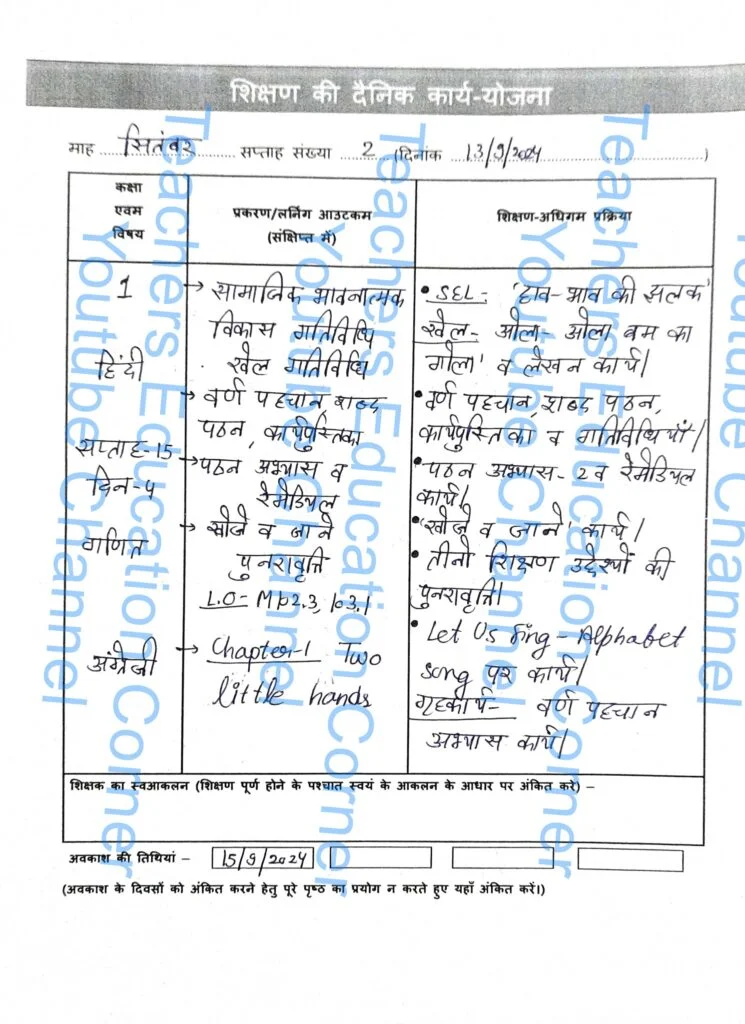 शिक्षण की दैनिक कार्य-योजना
माह ....सितंबर.... सप्ताह संख्या ....2.... (दिनांक ....13/9/2024....)
कक्षा
एवम
विषय
प्रकरण/लर्निंग आउटकम
(संक्षिप्त में)
शिक्षण-अधिगम प्रक्रिया
1
हिंदी
सप्ताह-15
दिन-4
गणित
अंग्रेजी
→ सामाजिक भावनात्मक
विकास गतिविधि
. खेल गतिविधि
→ वर्ण पहचान शब्द
पठन, कार्यपुस्तिका
→ पठन अभ्यास व
रेमेडियल
→ खोजे व जाने
पुनरावृत्ति
L.O- M102.3, 103.1
→ Chapter-1 Two
little hands
• SEL- 'हाव-भाव की झलक'
खेल- ओला- ओला बम का
गोला' व लेखन कार्य।
• वर्ण पहचान, शब्द पठन,
कार्यपुस्तिका व गतिविधियाँ।
• पठन अभ्यास- 2 व रेमेडियल
कार्य।
• 'खोजे व जाने' कार्य।
• तीनो शिक्षण उद्देश्यों की
पुनरावृत्ति।
• Let Us Sing - Alphabet
song पर कार्य।
गृहकार्य- वर्ण पहचान
अभ्यास कार्य।
शिक्षक का स्वआकलन (शिक्षण पूर्ण होने के पश्चात स्वयं के आकलन के आधार पर अंकित करे) –
अवकाश की तिथियां – 15/9/2024
(अवकाश के दिवसों को अंकित करने हेतु पूरे पृष्ठ का प्रयोग न करते हुए यहाँ अंकित करें।)
Teachers Education Corner
Youtube Channel
Teachers Education Corner
Youtube Channel
Teachers Education Corner
Youtube Channel